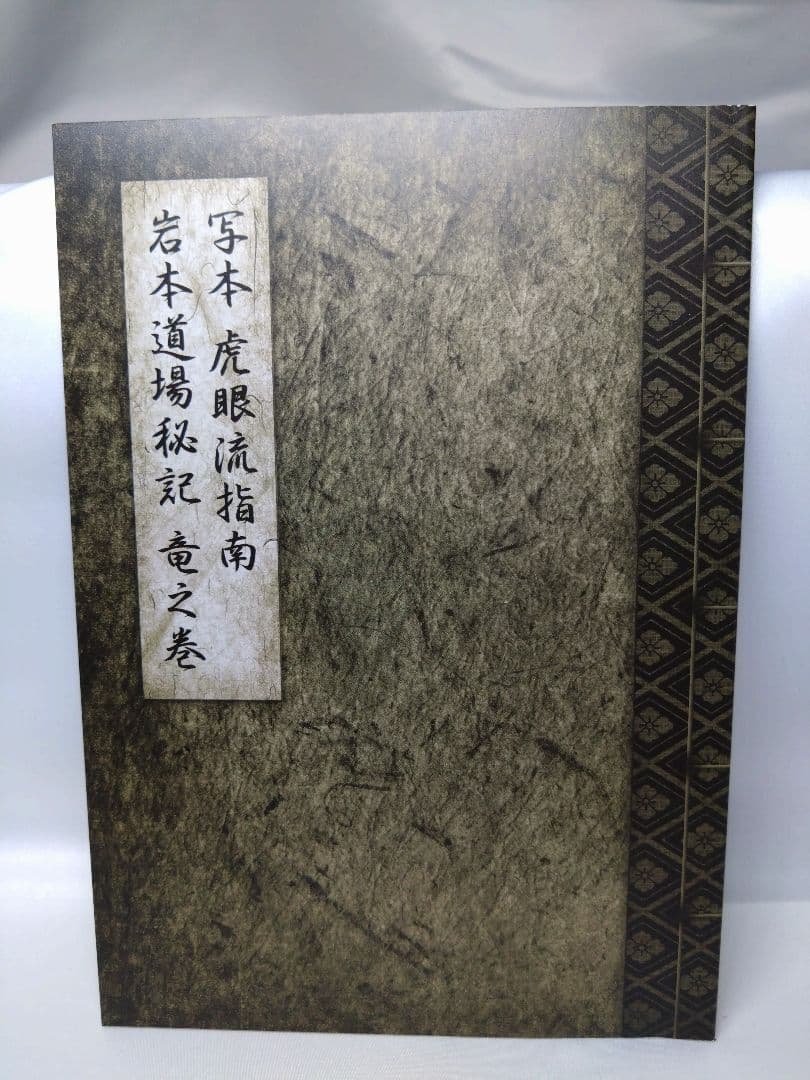 写本 虎眼流指南
岩本道場秘記 竜之巻